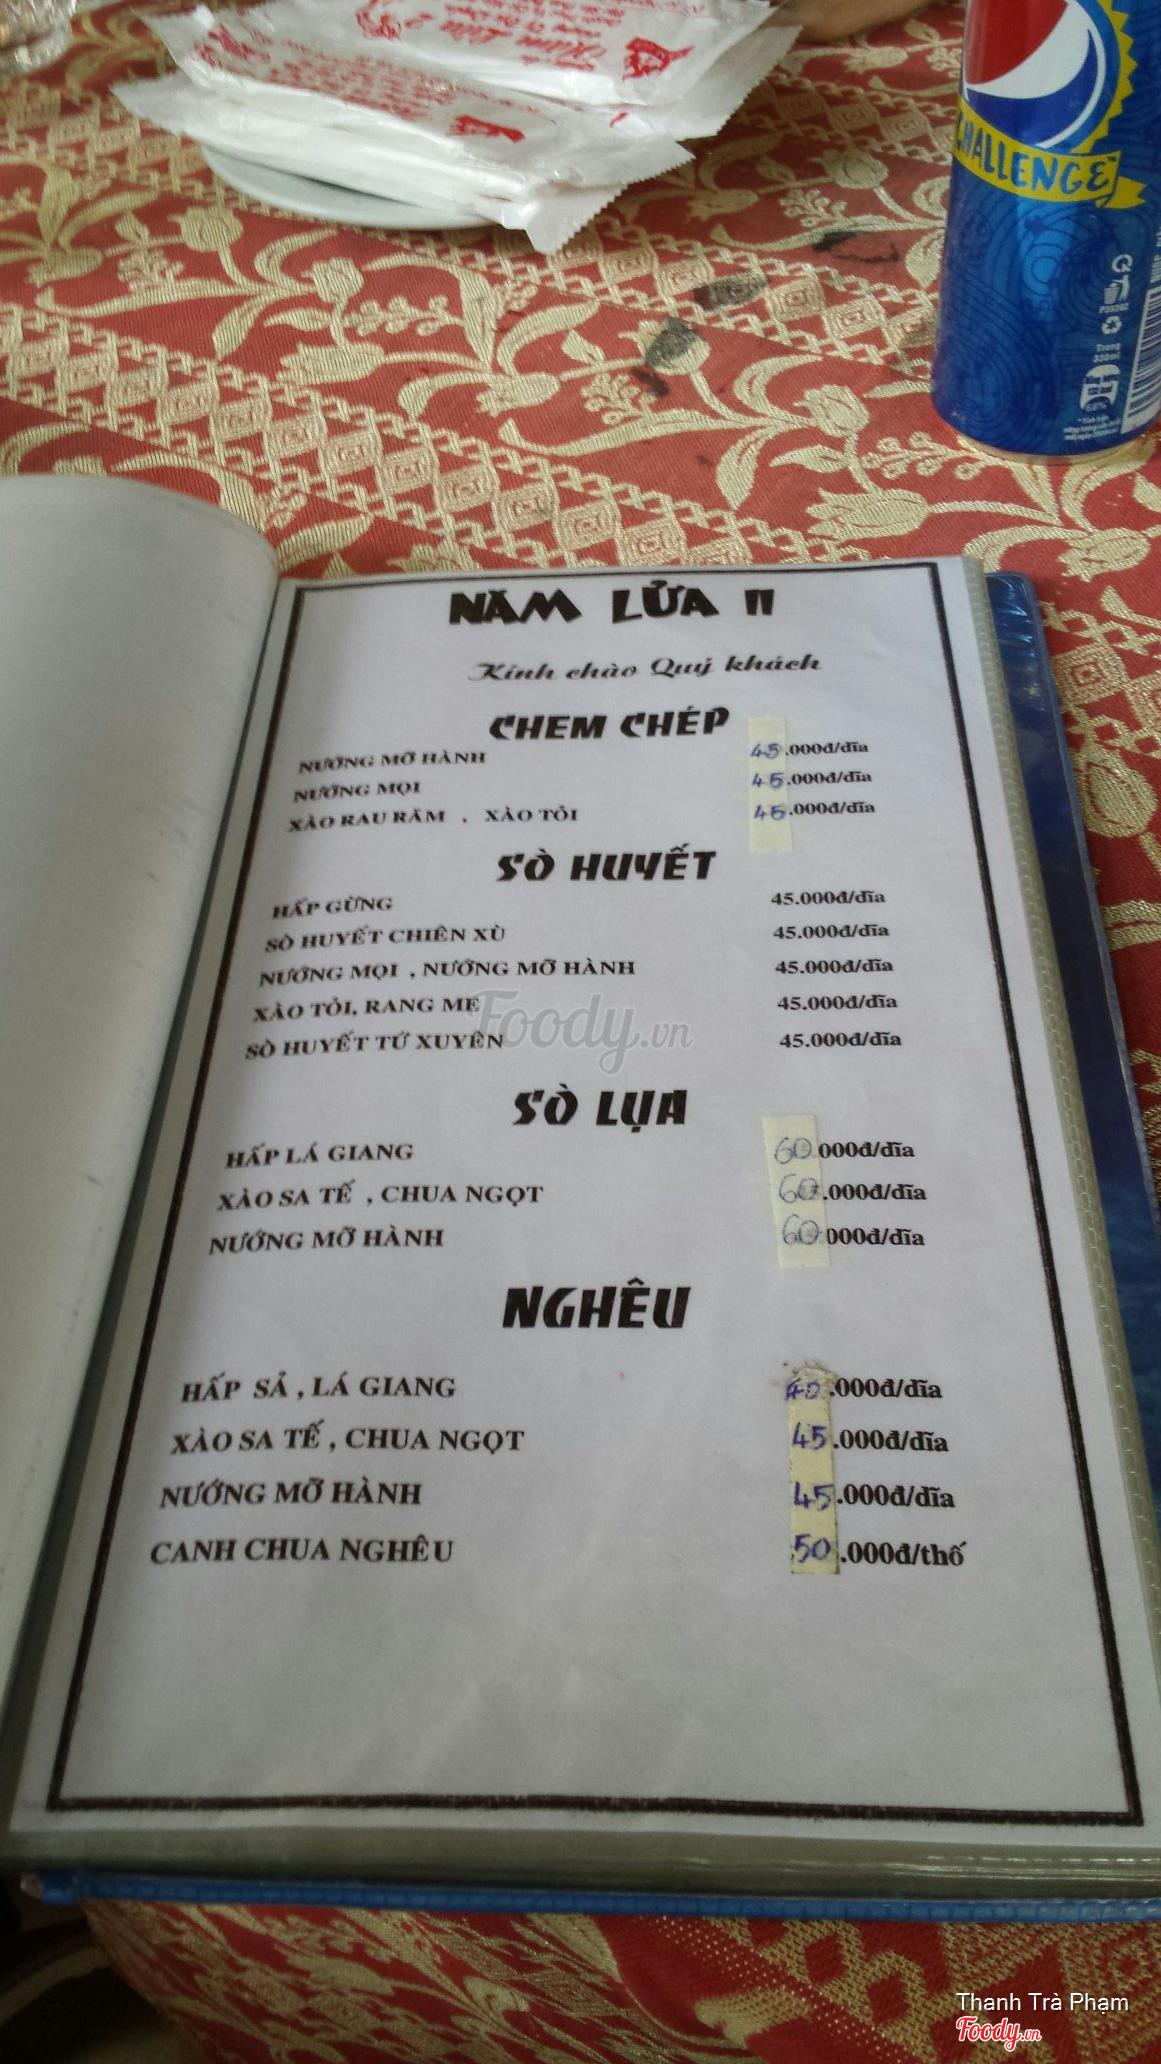 Năm Lửa 2
CHALLENGE
Trong
330ml
NĂM LỬA II
Kính chào Quý khách
CHEM CHÉP
NƯỚNG MỠ HÀNH 45.000đ/dĩa
NƯỚNG MỌI 45.000đ/dĩa
XÀO RAU RĂM , XÀO TỎI 45.000đ/dĩa
SÒ HUYẾT
HẤP GỪNG 45.000đ/dĩa
SÒ HUYẾT CHIÊN XÙ 45.000đ/dĩa
NƯỚNG MỌI , NƯỚNG MỠ HÀNH 45.000đ/dĩa
XÀO TỎI, RANG ME 45.000đ/dĩa
SÒ HUYẾT TỨ XUYÊN 45.000đ/dĩa
Foody.vn
SÒ LỤA
HẤP LÁ GIANG 60.000đ/dĩa
XÀO SA TẾ , CHUA NGỌT 60.000đ/dĩa
NƯỚNG MỠ HÀNH 60.000đ/dĩa
NGHÊU
HẤP SẢ , LÁ GIANG 40.000đ/dĩa
XÀO SA TẾ , CHUA NGỌT 45.000đ/dĩa
NƯỚNG MỠ HÀNH 45.000đ/dĩa
CANH CHUA NGHÊU 50.000đ/thố
Thanh Trà Phạm
Foody.vn